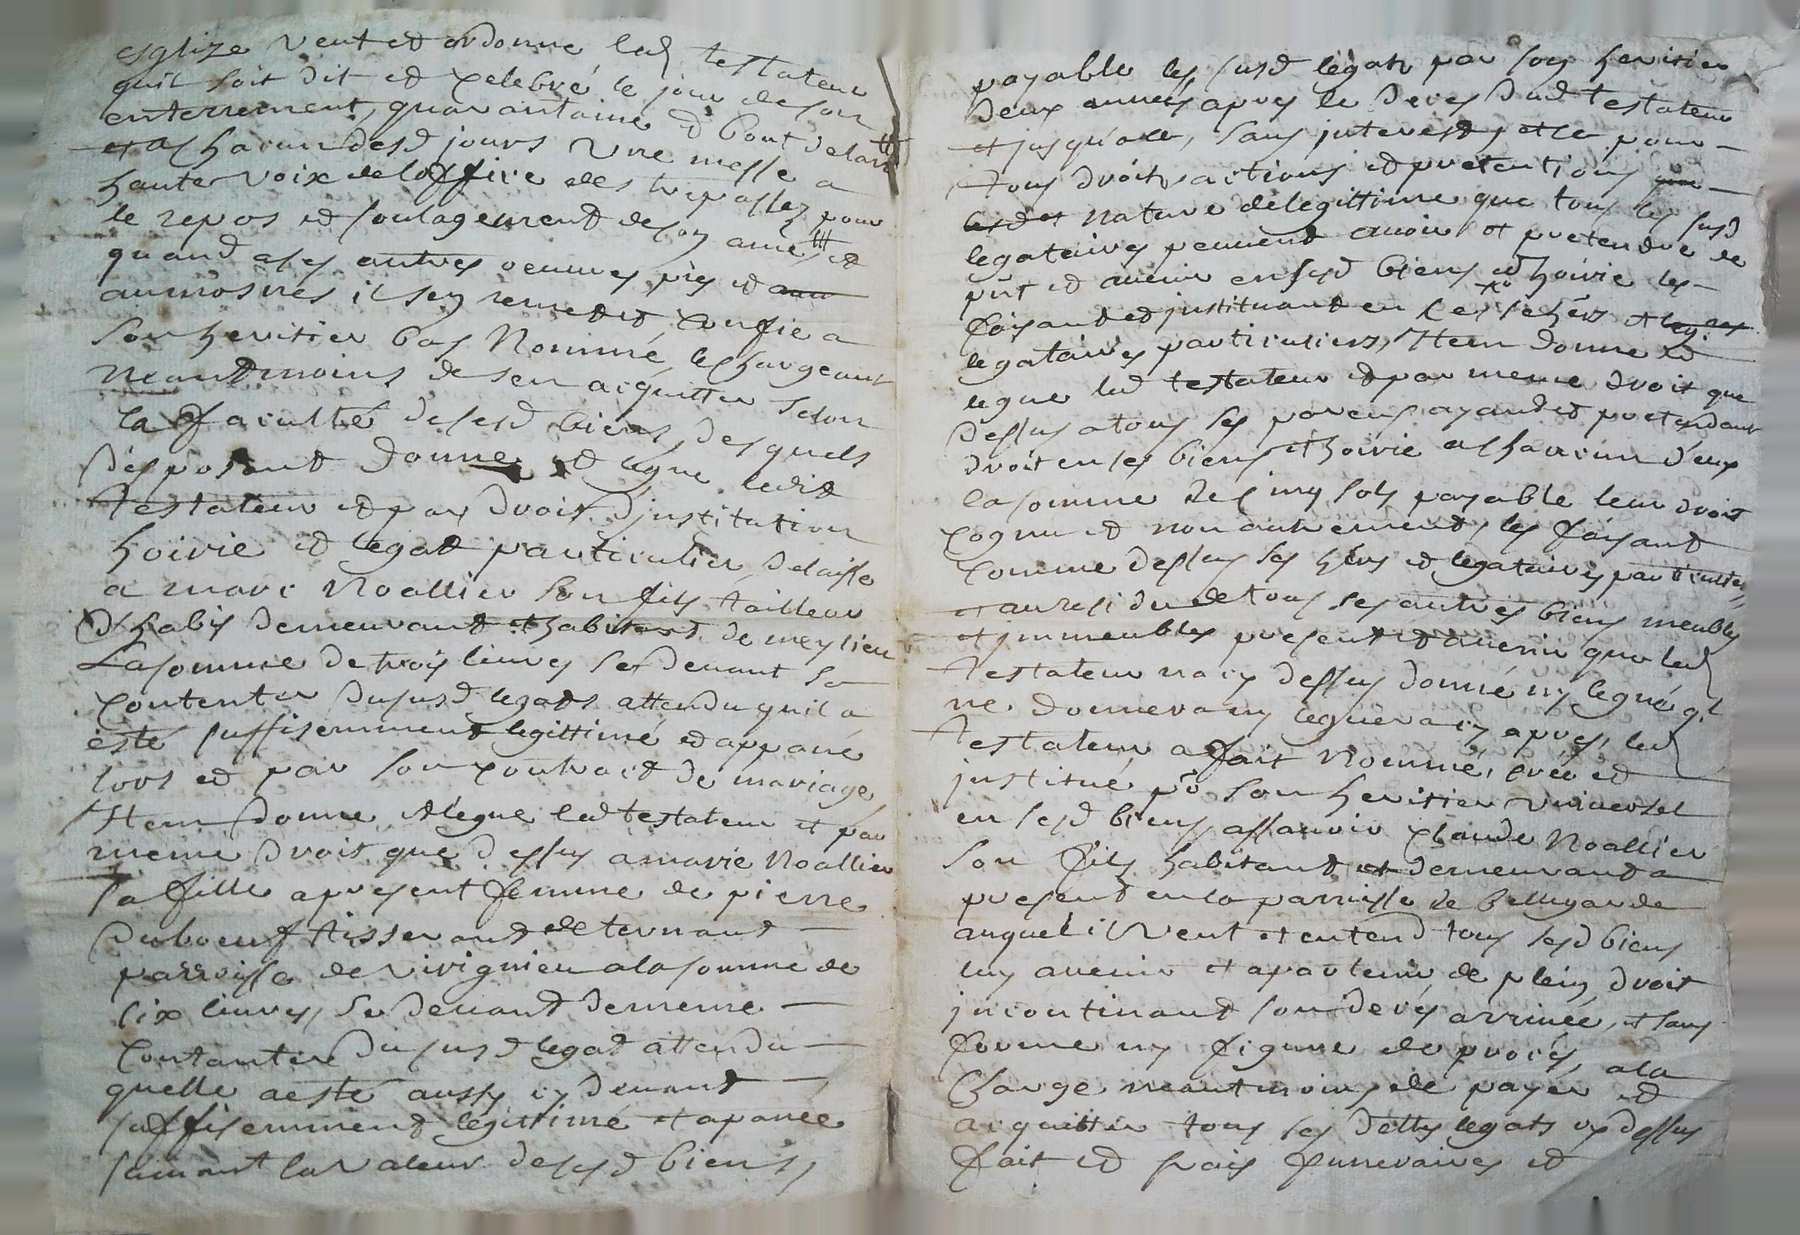 esglize veut et ordonne led testateur
quil soit dit et celebré le jour de son
enterrement, quarantaine et bout de lan
et a chacun desd jours une messe a
haute voix de loffice des trepassez pour
le repos et soulagement de son ame, et
quand a ses autres oeuvres pies et
aumosnes il sen remet et confie a
son heritier bas nommé le chargeant
neantmoins de sen acquitter selon
la faculté de sesd biens, desquels
disposant donne et legue ledit
testateur et par droit dinstitution
hoirie et legat particulier, delaisse
a marc Noallier son fils tailleur
dhabis demeurant et habitant de meylieu
la somme de trois livres se devant
contenter du susd legats attendu quil a
esté suffisemment legittimé et appané
lors et par son contract de mariage,
Item donne et legue led testateur et par
meme droit que dessus a marie Noallier
sa fille a present femme de pierre
duboeuf tisserant de ternant
parroisse de virignieu a la somme de
six livres, se devant de meme
contanter du susd legat attendu
quelle a esté aussy cy devant
suffisemment legittimé et apanée
suivant la valeur de sesd biens,
payable les susd legats par son heritier
deux années apres le deces dud testateur
et jusqu'a ce, sans interests et ce pour
tous droits actions et pretentions
et nature de legittime que tous les susd
legataires peuvent avoir et pretendre de
pnt et avenir en sesd biens et hoirie les
faisant et instituant en ce ses hers et
legataires particuliers, Item donne et
legue led testateur et par meme droit que
dessus a tous ses parens ayant et pretendant
droit en ses biens et hoirie a chacun d'eux
la somme de cinq sols payable leur droit
cognu et non autrement, les faisant
comme dessus ses hers et legataires particuliers
et au residu de tous ses autres biens meubles
et immeubles present et avenir que led
testateur na cy dessus donné ny legué ql
ne donnera ny leguera cy apres, led
testateur a fait nommé, créé et
institué pr son heritier universel
en sesd biens assavoir Claude Noallier
son fils habitant et demeurant a
present en la parroisse de bellegarde
auquel il veut et entend tous sesd biens
luy avenir et apartenir de plein droit
incontinant son deces arrivée, et sans
forme ny figure de procès, a la
charge neantmoins de payer et
acquitter tous ses dettes legats cy dessus
fait et frais funeraires et